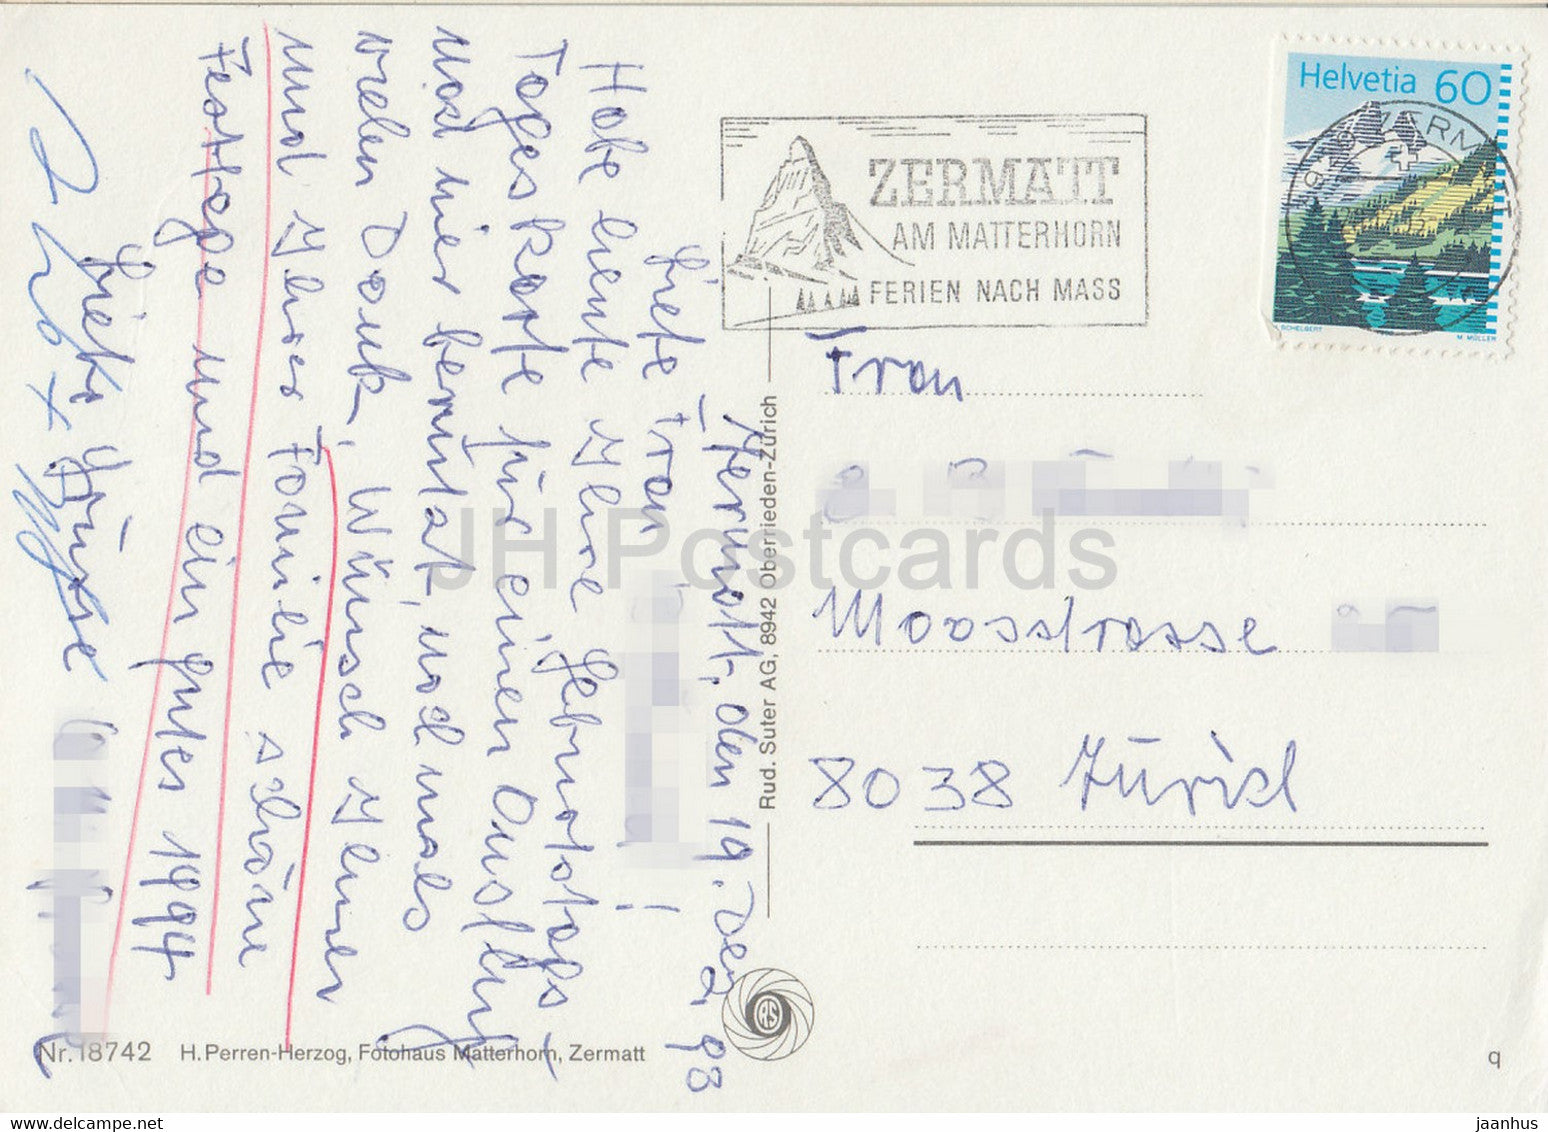 Helvetia 60
SCHELBERT
M. MÜLLER
ZERMATT
AM MATTERHORN
FERIEN NACH MASS
Zermatt, den 19. Dez 93
Liebe Frau
!
Habe heute Ihre Geburtstags-
Tageskarte für einen Ausflug
nach hier benützt, nochmals
vielen Dank, Wünsch Ihnen
und Ihrer Familie schöne
Festtage und ein gutes 1994
Liebe Grüsse
Frau
Moosstrasse
8038 Zürich
Rud. Suter AG, 8942 Oberrieden-Zürich
RS
Nr. 18742 H. Perren-Herzog, Fotohaus Matterhorn, Zermatt
q
JH Postcards
www.hippostcard.com
jaanhus